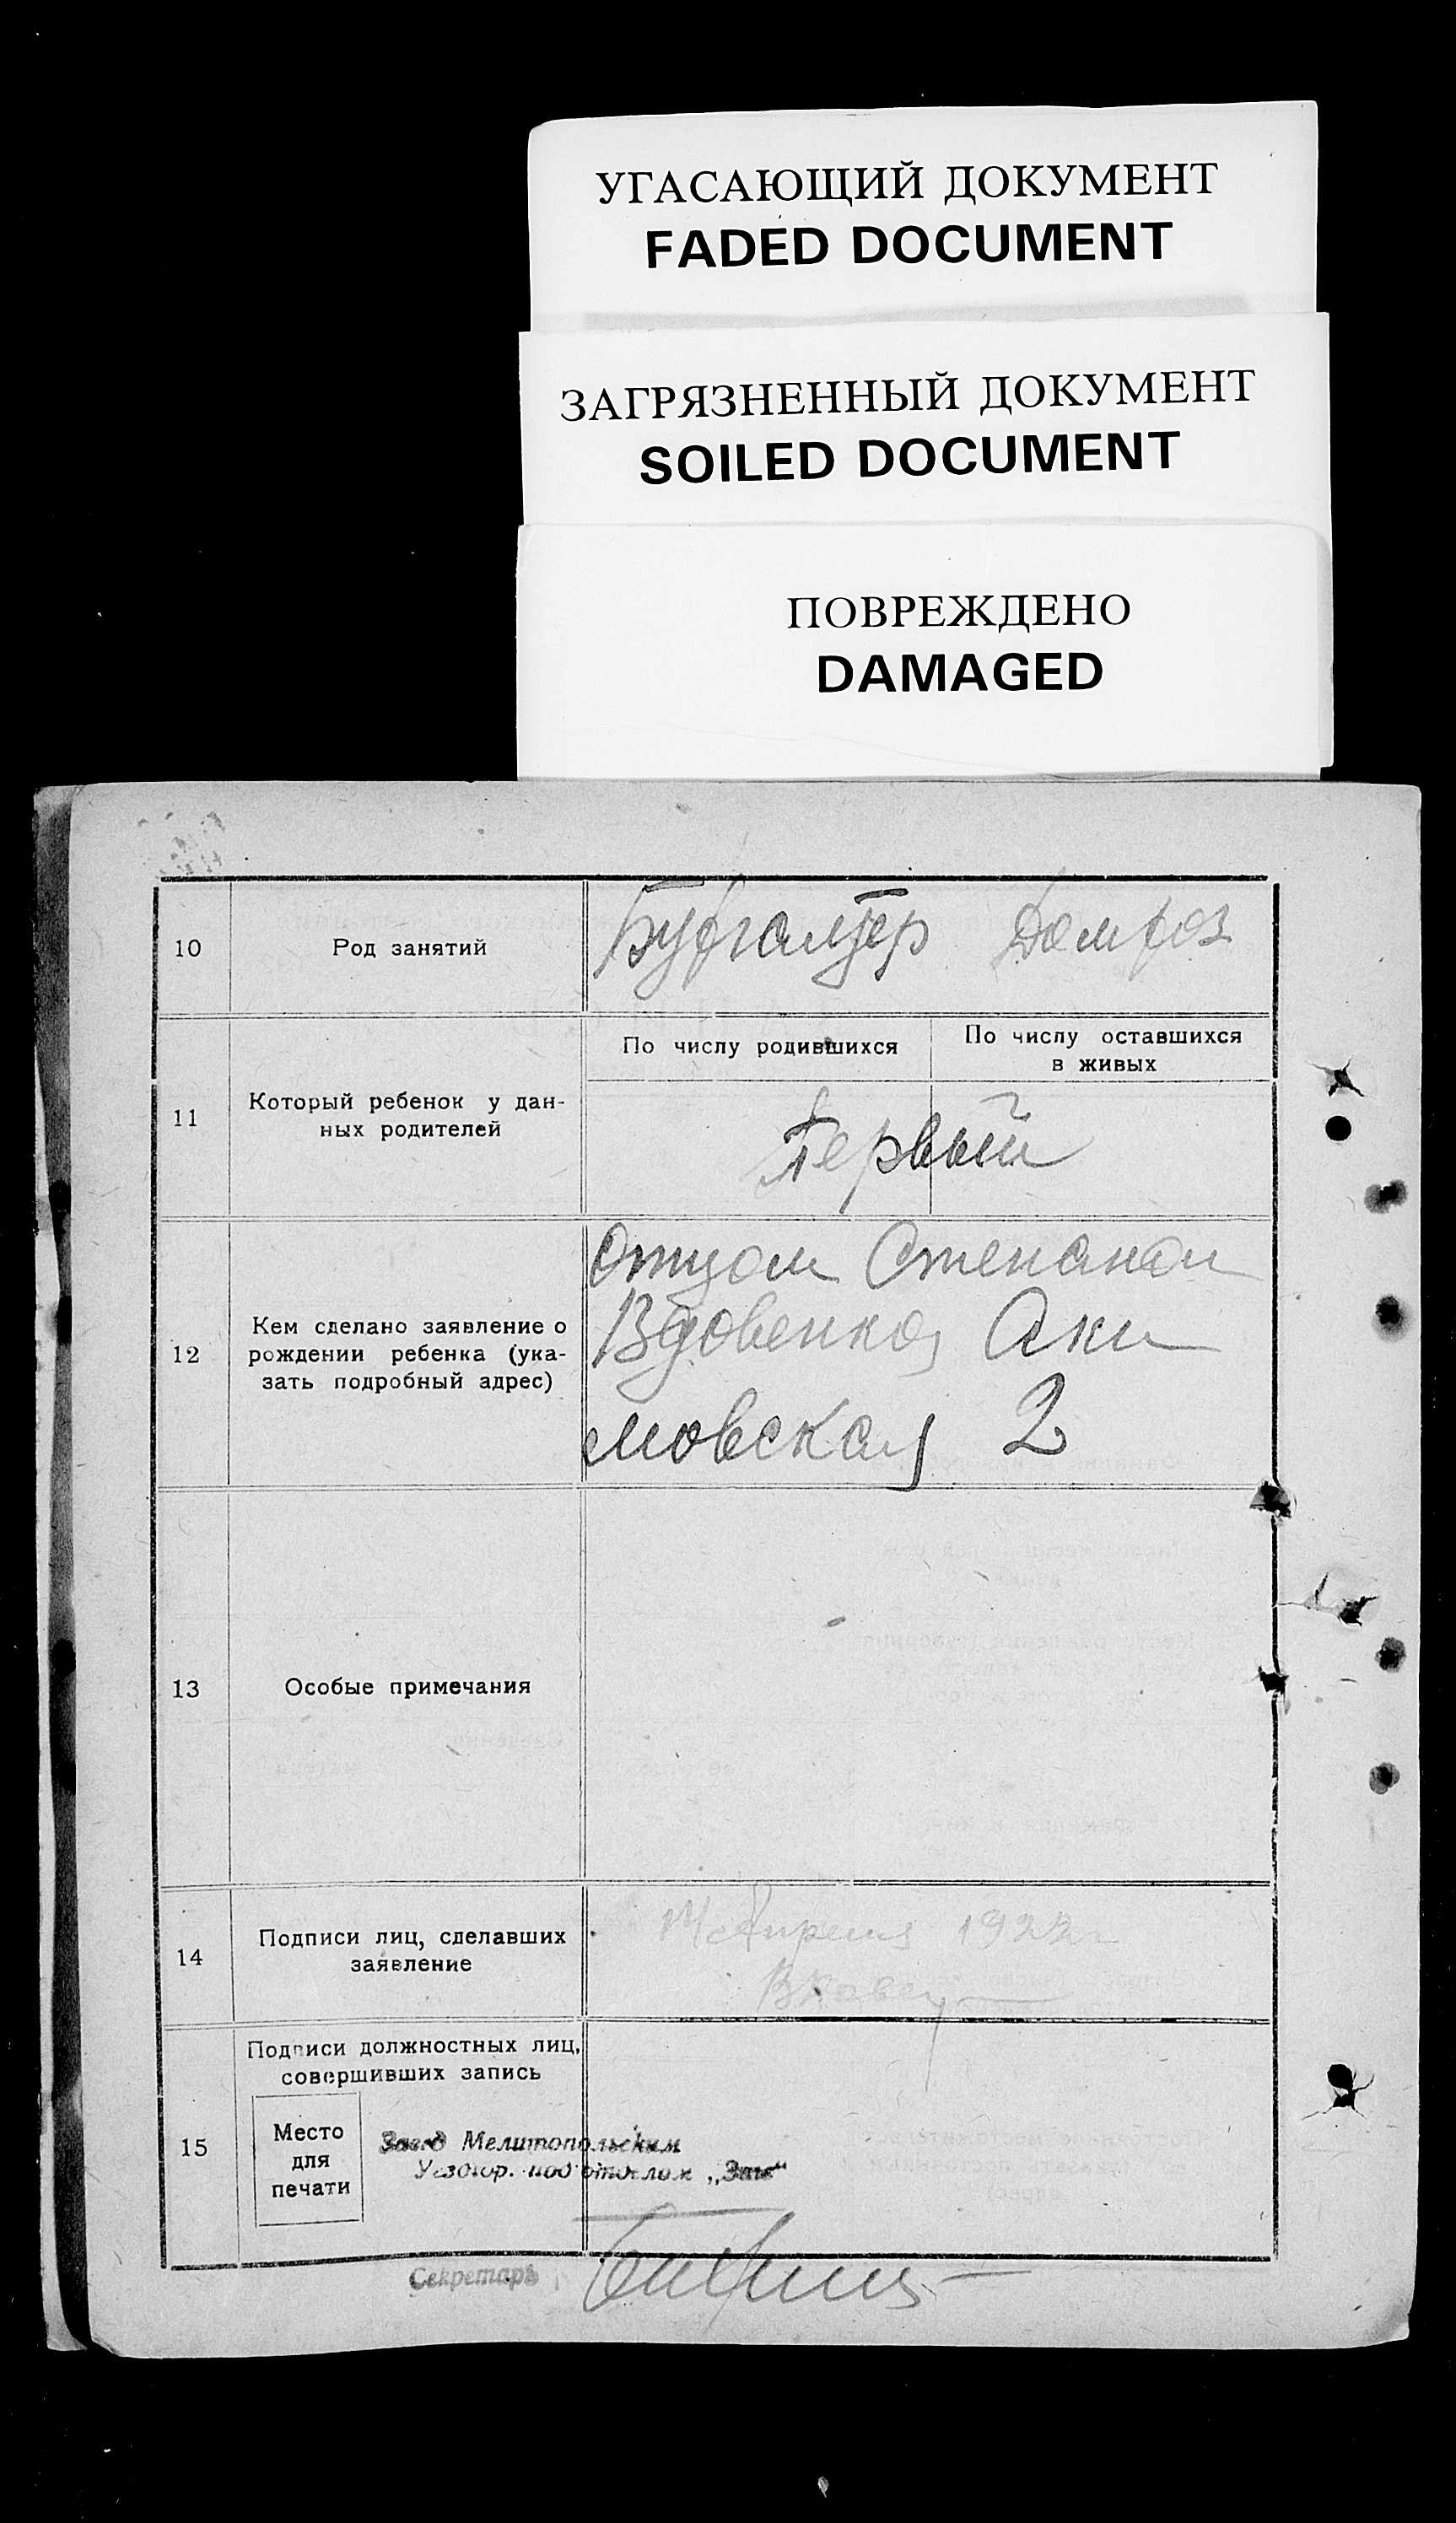 УГАСАЮЩИЙ ДОКУМЕНТ
FADED DOCUMENT
ЗАГРЯЗНЕННЫЙ ДОКУМЕНТ
SOILED DOCUMENT
ПОВРЕЖДЕНО
DAMAGED
10
Род занятий
Бухгалтер
11
Который ребенок у дан-
ных родителей
По числу родившихся
По числу оставшихся
в живых
Первый
12
Кем сделано заявление о
рождении ребенка (ука-
зать подробный адрес)
Отцом Степаном
Вдовенко, Аки
мовская 2
13
Особые примечания
14
Подписи лиц, сделавших
заявление
Апреля
15
Подписи должностных лиц,
совершивших запись
Место
для
печати
Завед Мелитопольским
подотделом „Загс“
Секретарь